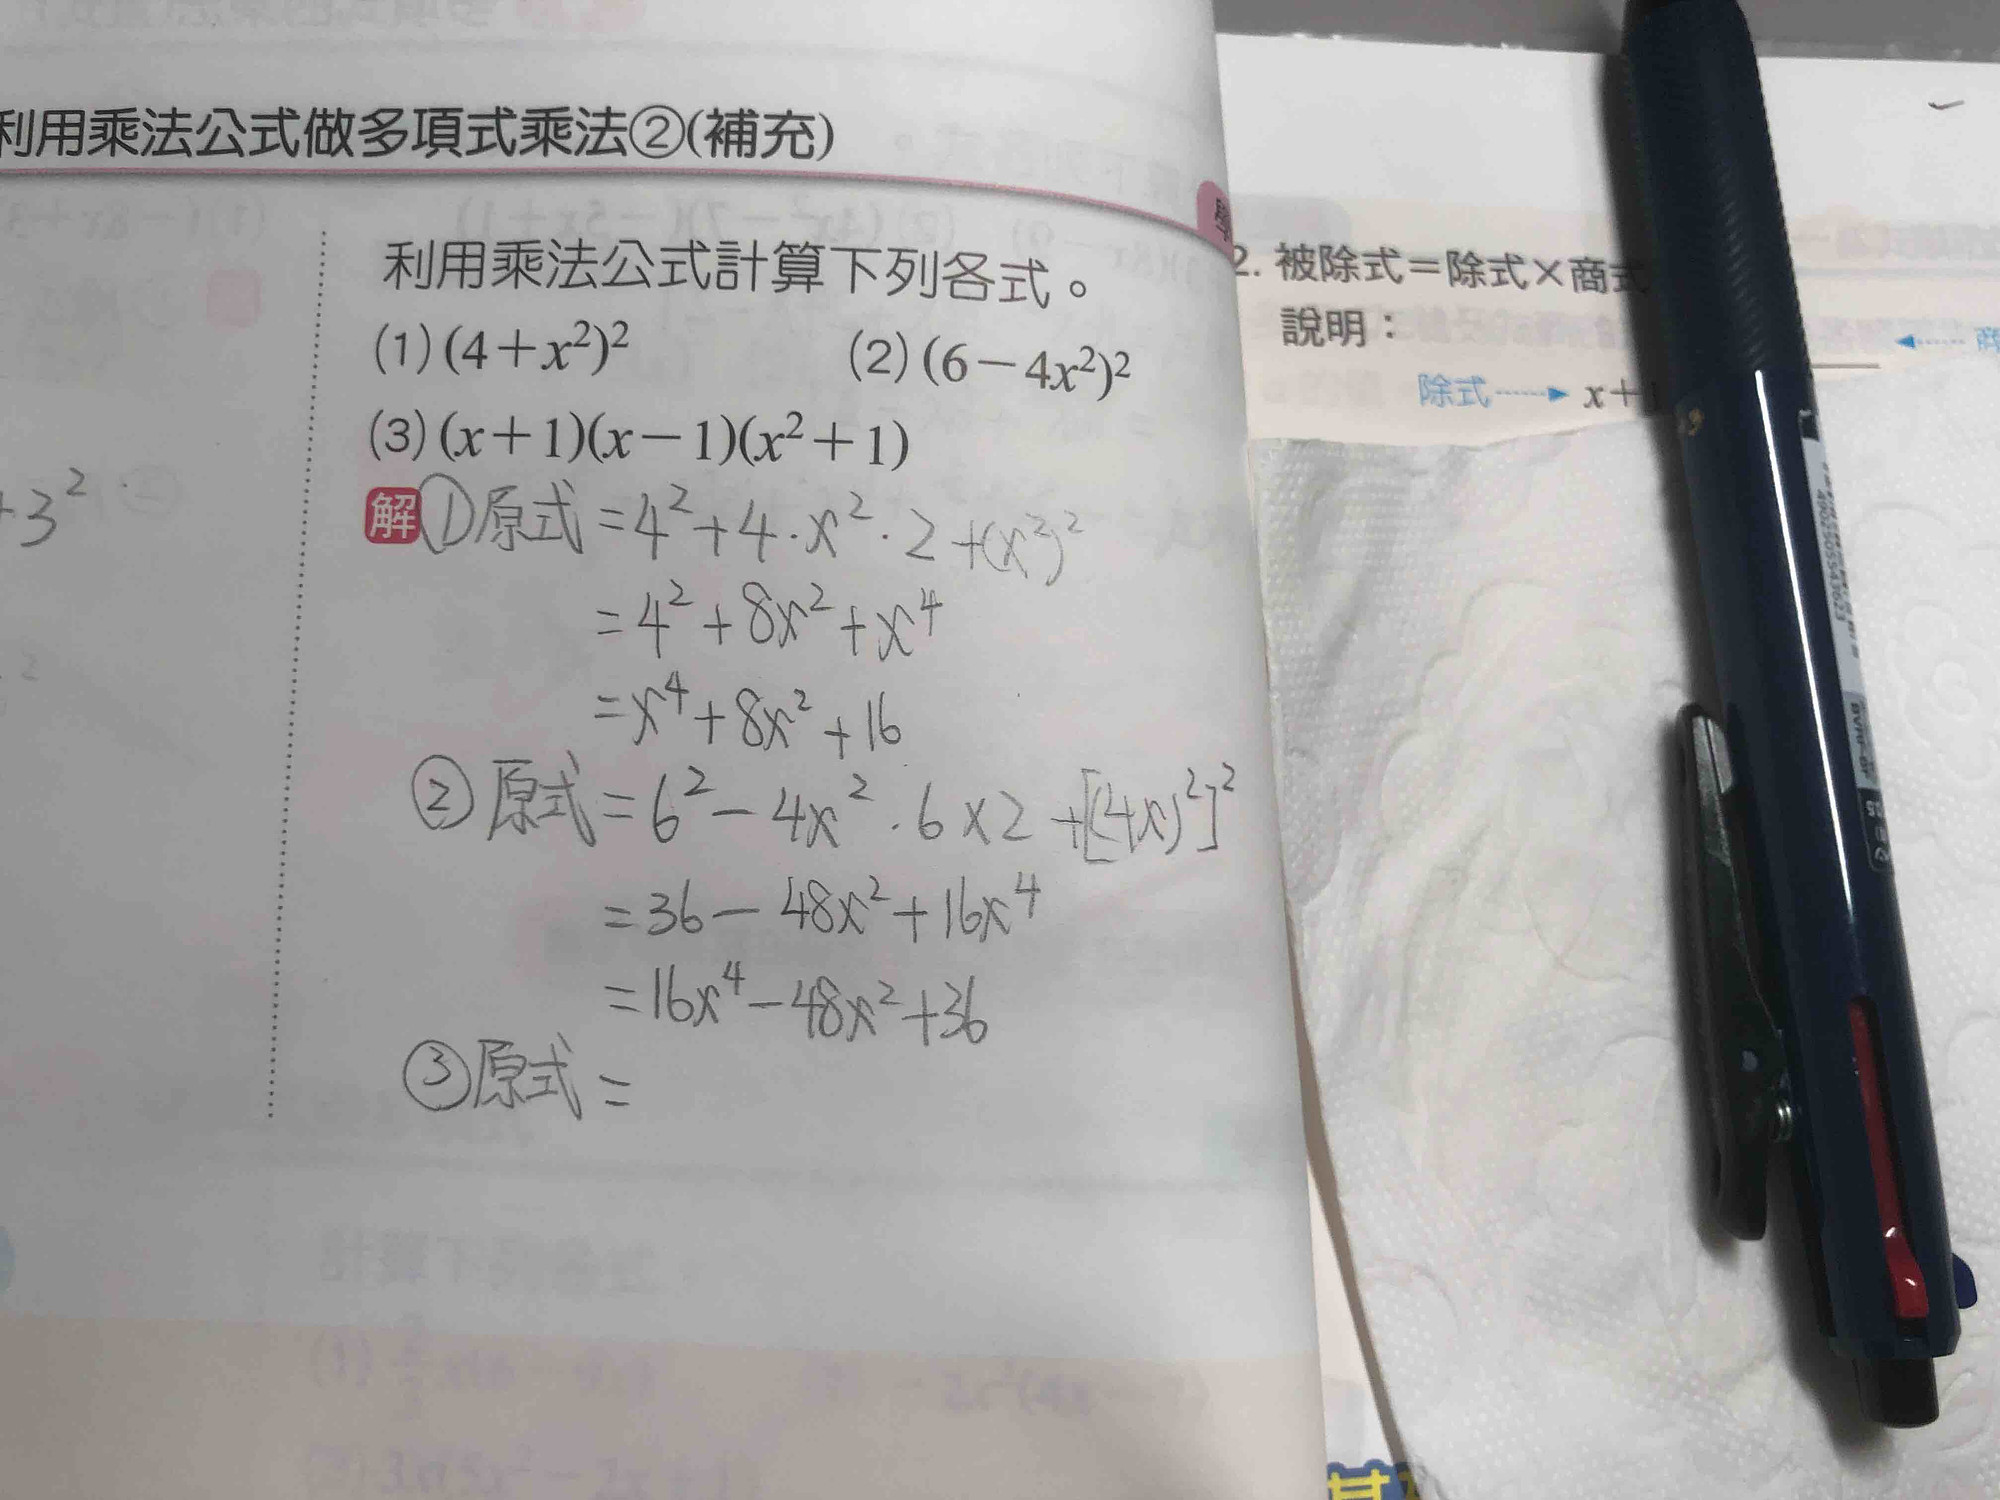 利用乘法公式做多項式乘法②(補充)
利用乘法公式計算下列各式。
(1)(4+x²)² (2)(6-4x²)²
(3)(x+1)(x-1)(x²+1)
+3²
解 ①原式=4²+4·x²·2+(x²)²
=4²+8x²+x⁴
=x⁴+8x²+16
②原式=6²-4x²·6×2+[(4x)²]²
=36-48x²+16x⁴
=16x⁴-48x²+36
③原式=
2. 被除式=除式×商式
說明：
商
除式 x+